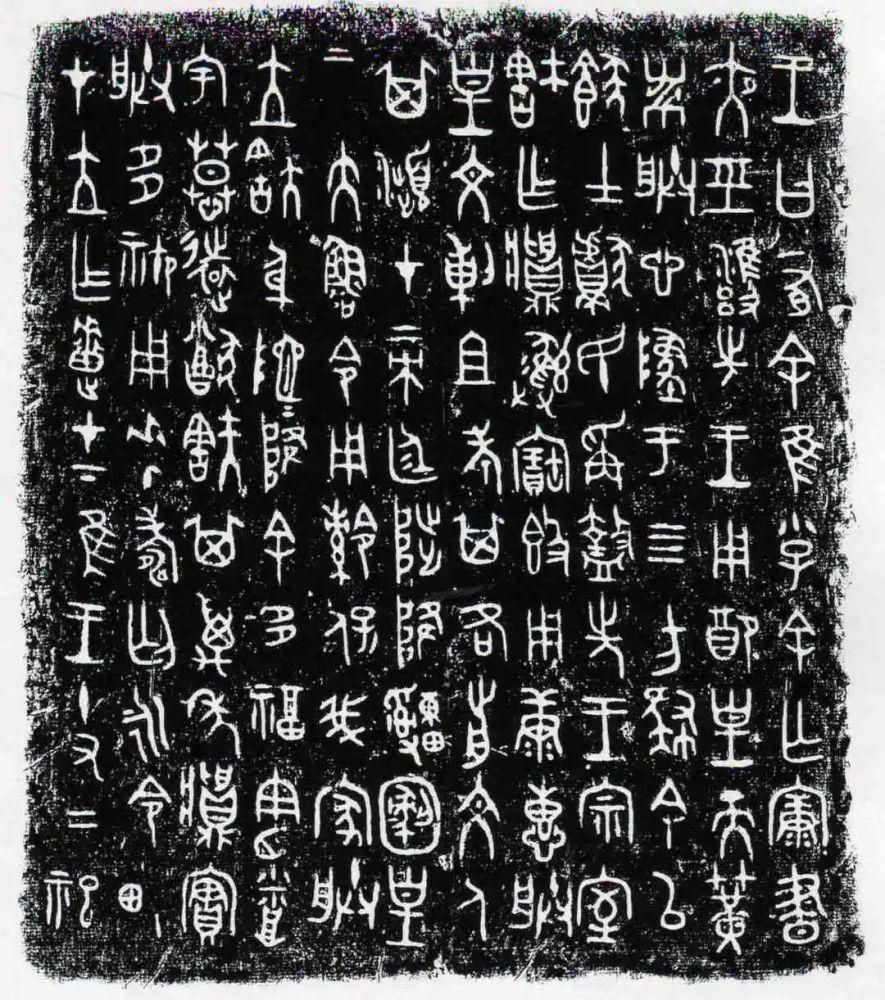 王曰有余隹小子余亡康晝
夜巠雝先王用配皇天黃
黹朕心墜于四方肆余以
士獻民爯盩先王宗室
㝬乍彝寶簋用康惠朕
皇文剌且考其各前文人
其瀕才帝廷陟降皇
帝大魯令用保我家朕
立㝬身阤阤降余多福憲烝
宇慕遠猷㝬其萬年實
朕多禦用𠦪壽匄永令畯
才立乍疐才下隹王十又二祀